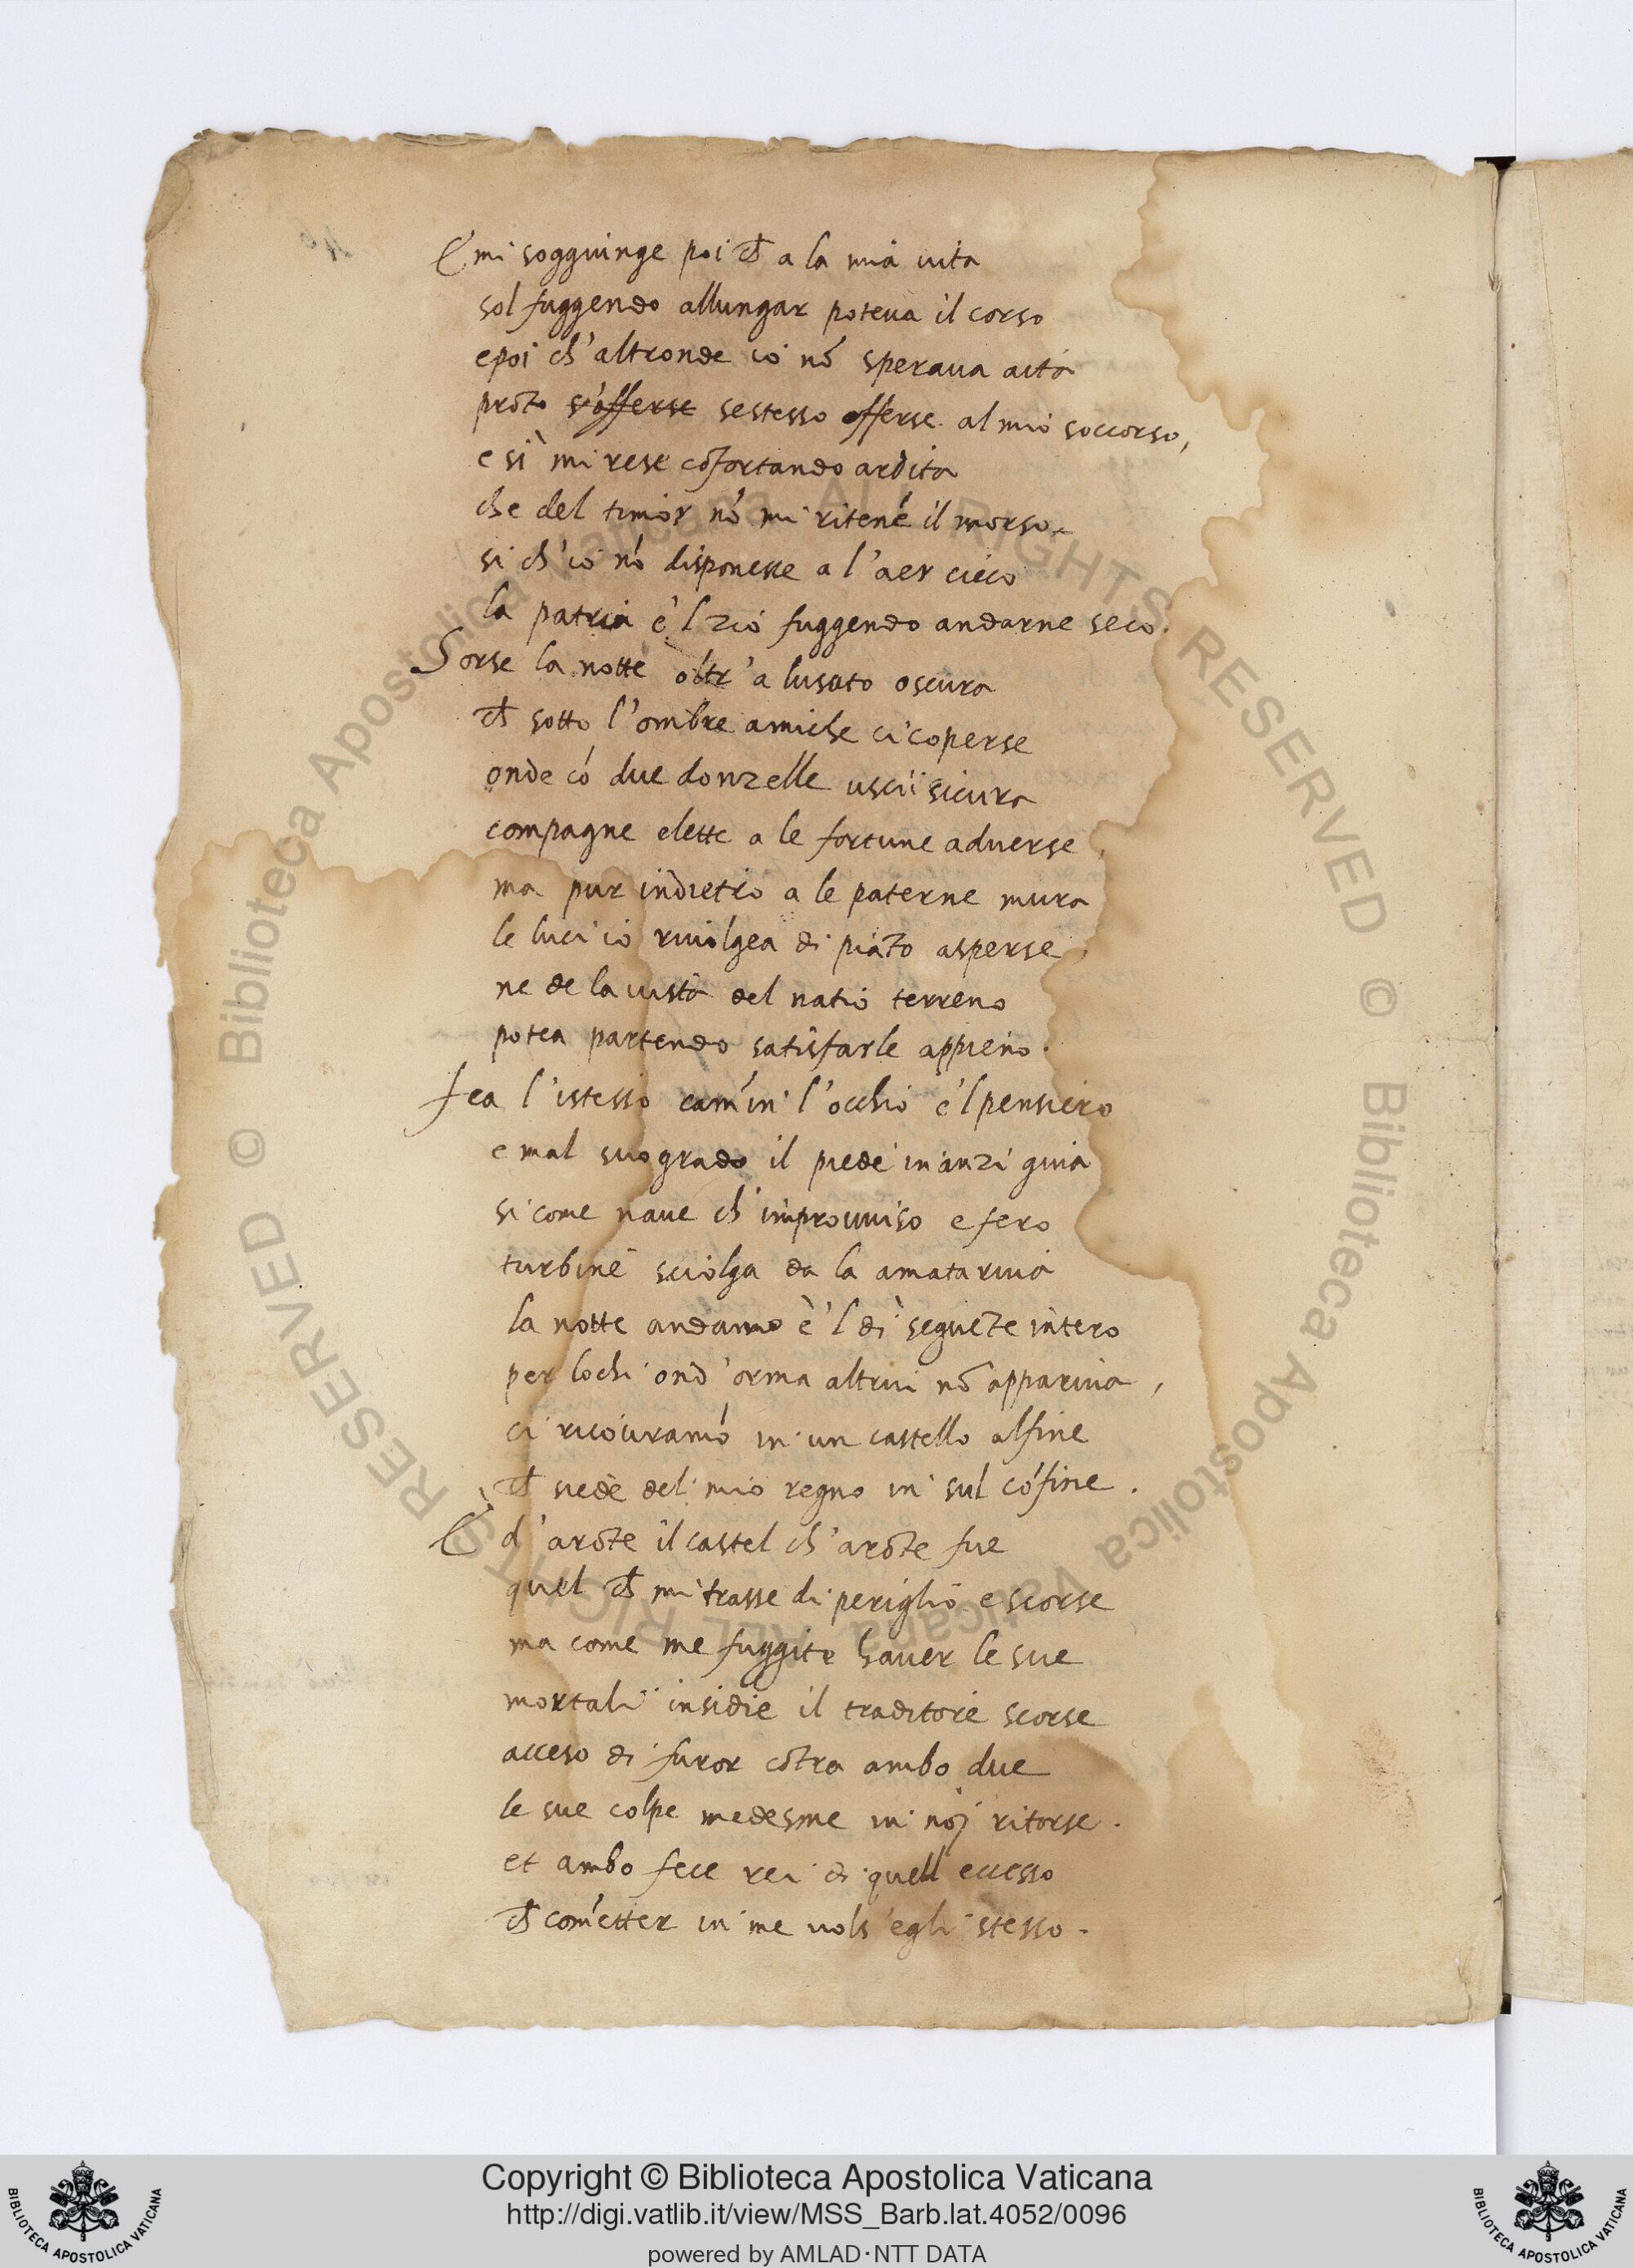 E mi soggiunge poi ch̄ a la mia uita
sol fuggendo allungar poteua il corso
e poi ch'altronde io nō speraua aita
prōto s'offerse sestesso offerse al mio soccorso,
e sì mi rese cōfortando ardita
che del timor nō mi ritēne il morso.
si ch'io nō disponesse a l'aer cieco
la patria e'l zio fuggendo andarne seco.
Sorse la notte oltr'a lusato oscura
ch̄ sotto l'ombre amiche ci coperse
onde cō due donzelle uscii sicura
compagne elette a le fortune aduerse,
ma pur indietro a le paterne mura
le luci io riuolgea di piāto asperse,
ne de la uista del natio terreno
potea partendo satisfarle appieno.
Fea l'istesso camin l'occhio e'l pensiero
e mal suo grado il piede inanzi giua
si come naue ch'improuuiso e fero
turbine sciolga da la amata riua
la notte andāmo e'l dì seguēte intero
per lochi ond'orma altrui nō appariua,
ci ricourāmo in un castello alfine
ch̄ siede del mio regno in sul cōfine.
È d'arōte il castel ch'arōte fue
quel ch̄ mi trasse di periglio e scorse
ma come me fuggite hauer le sue
mortali insidie il traditore scorse
acceso di furor cōtra ambo due
le sue colpe medesme in noj ritorse.
et ambo fece rei di quell eccesso
ch̄ cōmetter in me uols'egli stesso.
Copyright © Biblioteca Apostolica Vaticana
http://digi.vatlib.it/view/MSS_Barb.lat.4052/0096
powered by AMLAD·NTT DATA
BIBLIOTECA APOSTOLICA VATICANA
BIBLIOTECA APOSTOLICA VATICANA
© Biblioteca Apostolica Vaticana ALL RIGHTS RESERVED © Biblioteca Apostolica Vaticana ALL RIGHTS RESERVED